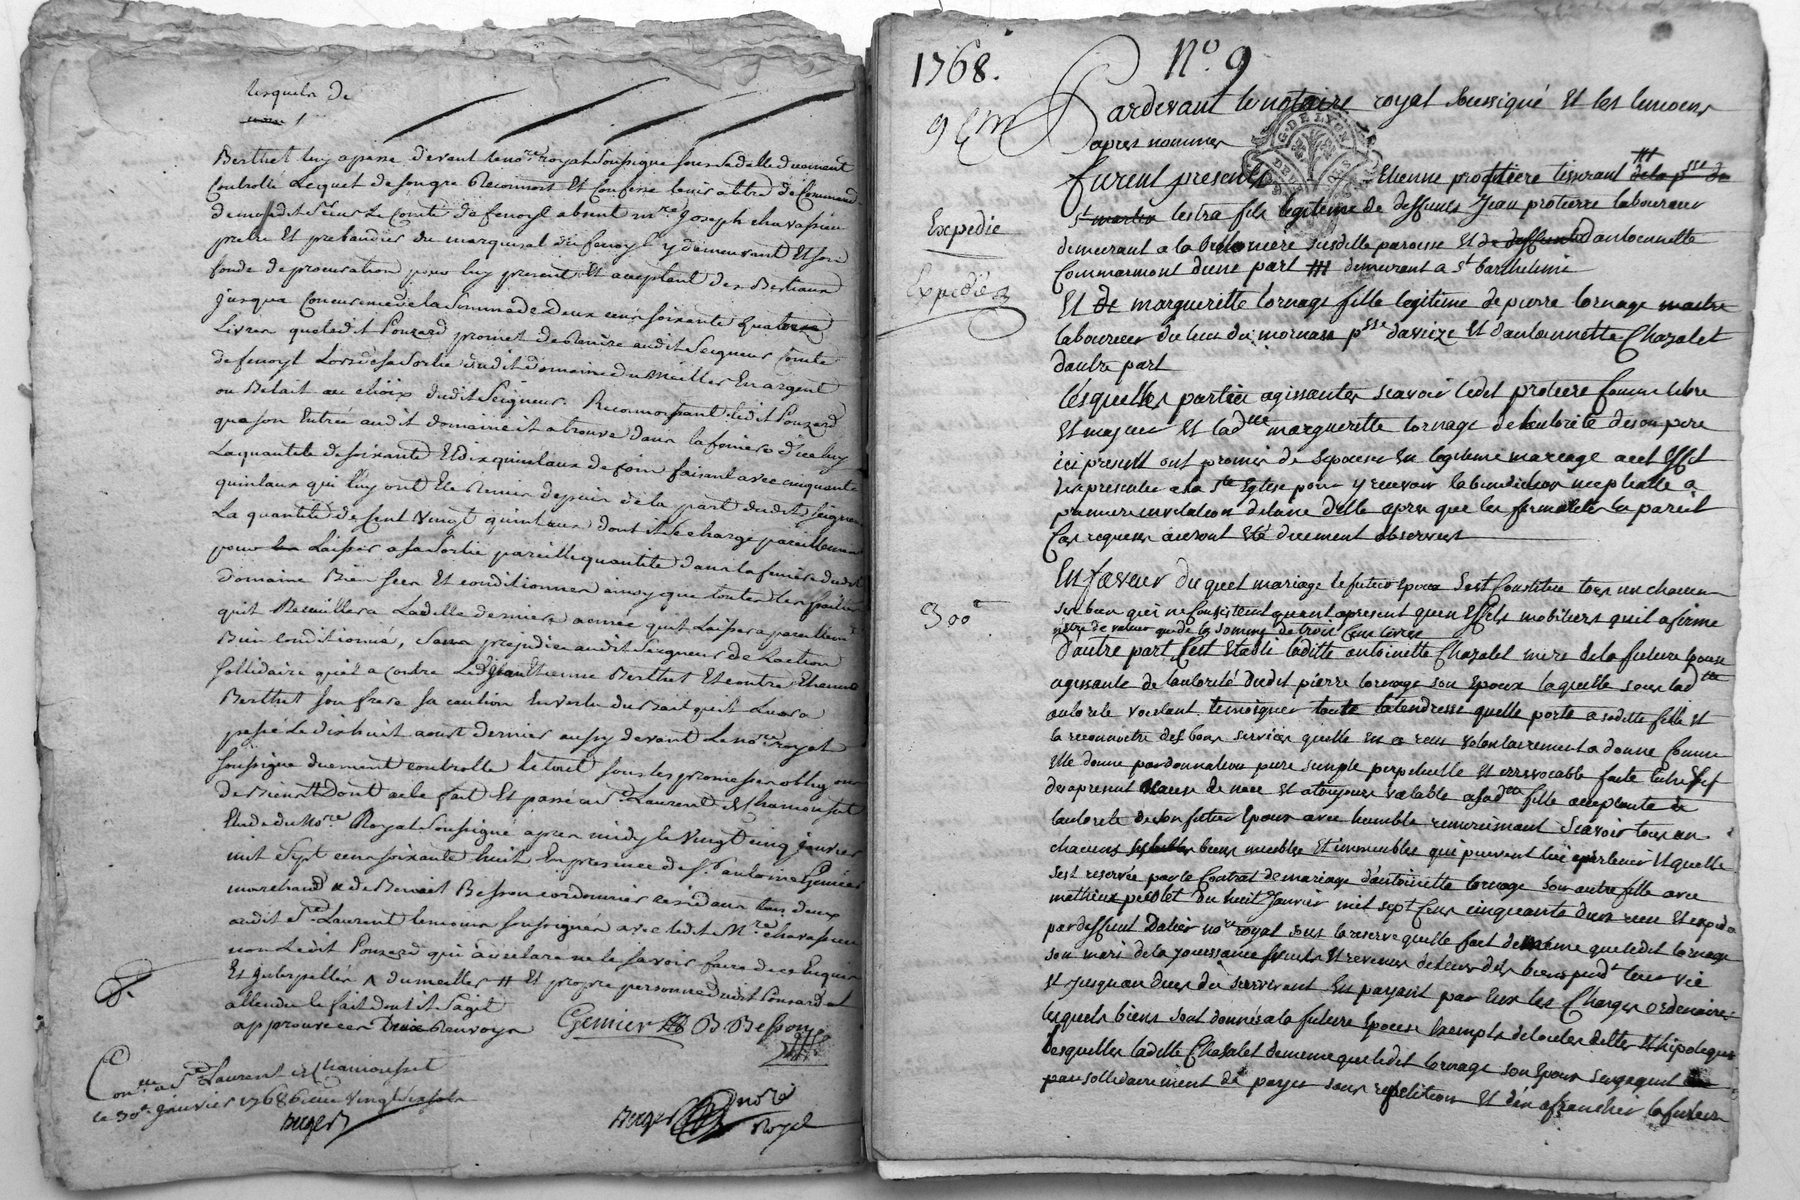 lesquels de
Berthet luy a passé devant le no.re royal soussigné sous sa datte duement
Controllé lequel de son gré Reconnoit Et Confesse tenir a titre de Command
de mondit sieur Le Comte de fenoyl absent m.re Joseph chavassieu
pretre Et prebandier du marquisat de fenoyl y demeurant Et son
fondé de procuration pour luy present Et acceptant des Bestiaux
jusqua Concurrence de la Somme de deux cens soixante quatorze
Livres que ledit Ponzard promet de Rendre audit Seigneur Comte
de fenoyl Lors de sa Sortie dudit domaine du Meilleur En argent
ou Bétail au choix dudit Seigneur. Reconnoissant ledit Ponzard
qua son Entrée audit domaine il a trouvé dans la feniere d'iceluy
La quantité de soixante Et dix quintaux de foin faisant avec cinquante
quintaux qui luy ont Eté Remis depuis de la part dudit Seigneur
La quantité de Cent vingt quintaux dont il se charge pareillement
pour Laisser a sa Sortie pareille quantité dans la feniere dudit
domaine Bien sec Et conditionné ainsy que toutes les pailles
quil Recuillera La ditte derniere année quil Laissera pareillement
Bien conditionné, Sans prejudice audit Seigneur de Laction
Sollidaire quil a contre Led Jean Etienne Berthet Et contre Etienne
Berthet son frere sa caution En vertu du Bail quil Luy a
passé Le dixhuit aoust dernier aussy devant Le no.re royal
soussigné duement controllé Le tout sous les promesses oblig.ons
de Biens Dont acte fait Et passé a S.t Laurent de Chamousset
Etude du No.re Royal Soussigné apres midy le vingt cinq janvier
mil sept cens soixante huit En presence de S.r antoine Gemier
marchand Et de Benoit Besson cordonnier residans tous deux
audit S.t Laurent temoins soussignés avec ledit M.re chavassieu
non Ledit Ponzard qui a déclaré ne le savoir faire de ce Enquis
Et Interpellé ^ du meilleur # Et propre personne dudit Ponzard et
attendu le fait dont il Sagit
approuvé ces Deux Renvoys Gemier B Besson
Con.llé a S.t Laurent de Chamousset
le 30e janvier 1768 vingt six sols
Berger
Berger no.re Royal
1768. N.o 9
Pardevant le notaire royal soussigné Et les temoins
apres nommes
G. DE LYON
furent presents Etienne protiere tisserant de la p.sse de
S.t martin lestra fils legitime de deffunts Jean protiere laboureur
demeurant a la susditte paroisse Et de deffunte d'antoinette
Commarmont d'une part # demeurant a S.t barthelemi
Expedié
Expedié
Et de margueritte tornage fille legitime de pierre tornage maitre
laboureur du lieu du mornass p.sse daveize Et d'antoinnette Chazalet
d'autre part
lesquelles parties agissantes scavoir ledit protiere comme libre
Et majeur Et lad.tte margueritte tornage de lautorité de son pere
ici present ont promis de sepouser En legitime mariage a cet Effet
se presenter a la S.te Eglise pour y recevoir la benediction nuptialle a
premiere invitation de lune delle apres que les formalités en pareil
Cas requises auront Eté duement observées
En faveur du quel mariage le futur Epoux sest Constitué tous un chacun
300
ses biens qui ne consistent quant apresent quen Effets mobiliers quil affirme
n'etre de valeur que de la somme de trois Cens livres
D'autre part sest Etabli laditte antoinette Chazalet mere de la future Epouse
agissante de lautorité dudit pierre tornage son Epoux laquelle sous lad.tte
autorité voulant temoigner toute la tendresse quelle porte a saditte fille Et
la reconnoitre des bons services quelle en a recu volontairement a donné Comme
Elle donne par donnation pure simple perpetuelle Et irrevocable faite Entre vif
des apresent a cause de noce Et a toujours valable a sad.tte fille acceptante de
lautorité de son futur Epoux avec humble remerciment scavoir tous un
chacuns biens meubles Et immeubles qui peuvent lui apartenir Et quelle
sest reservée par le Contrat de mariage d'antoinette tornage son autre fille avec
mathieux du huit Janvier mil sept Cens cinquante deux recu Et expedié
par deffunt Dalier no.re royal sous la reserve quelle fait de meme que ledit tornage
son mari de la jouissance fruits Et revenus de tous lesd. biens pend.t leur vie
Et jusquau deces du survivant En payant par Eux les Charges ordinaires
lesquels biens sont donnés a la future Epouse Exempts de toutes dettes Et hipoteques
desquelles laditte Chazalet de meme que ledit tornage son Epoux sengagent
pau sollidairement de payer sans repetition Et den afranchir la future